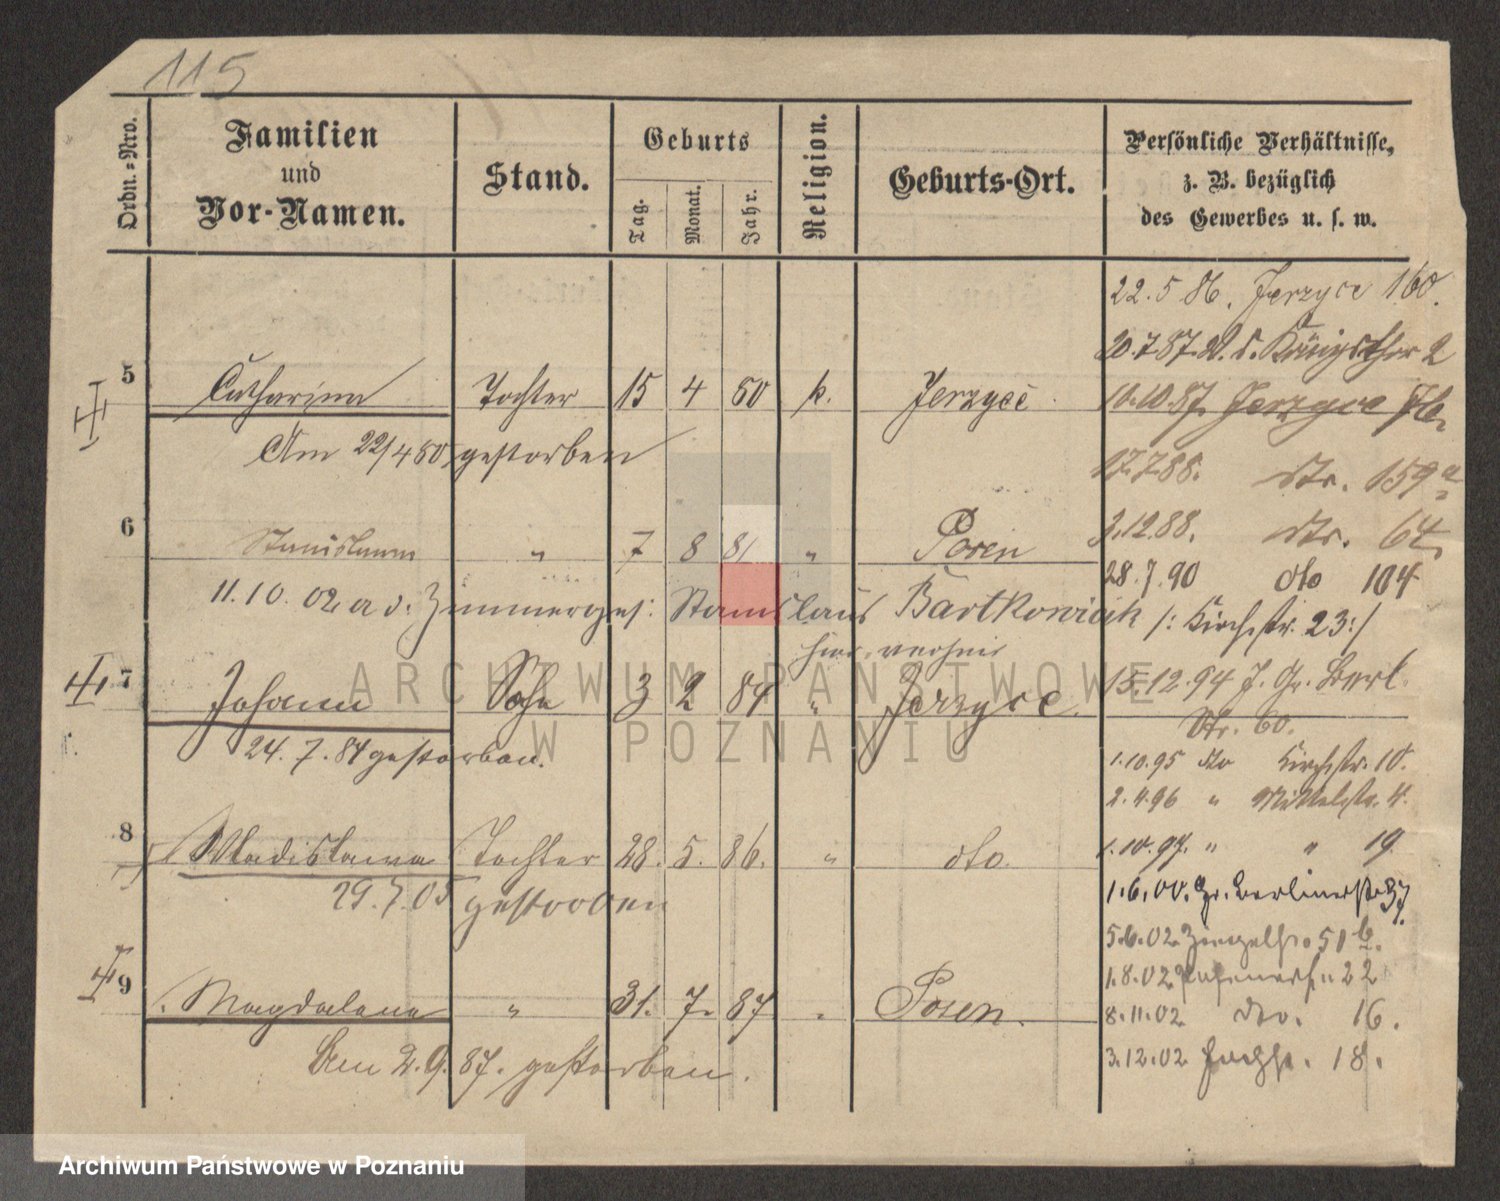 115
Ordn.=Nro.
Familien
und
Vor-Namen.
Stand.
Geburts
Tag.
Monat.
Jahr.
Religion.
Geburts-Ort.
Persönliche Verhältnisse,
z. B. bezüglich
des Gewerbes u. s. w.
22.5 86. Jerzyce 160.
20.7.87. Königsthor 2
5 Catharina Tochter 15 4 80 k. Jerzyce
10.10.87. Jerzyce
Am 22/4 80 gestorben
17.7.88. dto. 159a
6 Stanislawa " 7 8 81 " Posen
2.12.88. dto. 64.
28.7.90 dto 104
11.10.02 a. d. Zimmerges: Stanislaus Bartkowiak /: Kirchstr. 23:/
hier verheir
7 Johann Sohn 3 2 84 " Jerzyce
15.12.94 J. Gr. Berl.
Str. 60.
24.7.84 gestorben.
1.10.95 dto Kirchstr. 10.
2.4.96 " Mittelstr. 4.
8 Wladislawa Tochter 28. 5. 86. " dto.
1.10.97. " " 19
29.7.05 gestorben
1.6.00. Gr. Berlinerstr 37.
5.6.02 51b.
1.8.02 22
9 Magdalena " 31. 7. 87 " Posen.
8.11.02 dto. 16.
Am 2.9.87. gestorben.
3.12.02 18.
ARCHIWUM PAŃSTWOWE
W POZNANIU
Archiwum Państwowe w Poznaniu